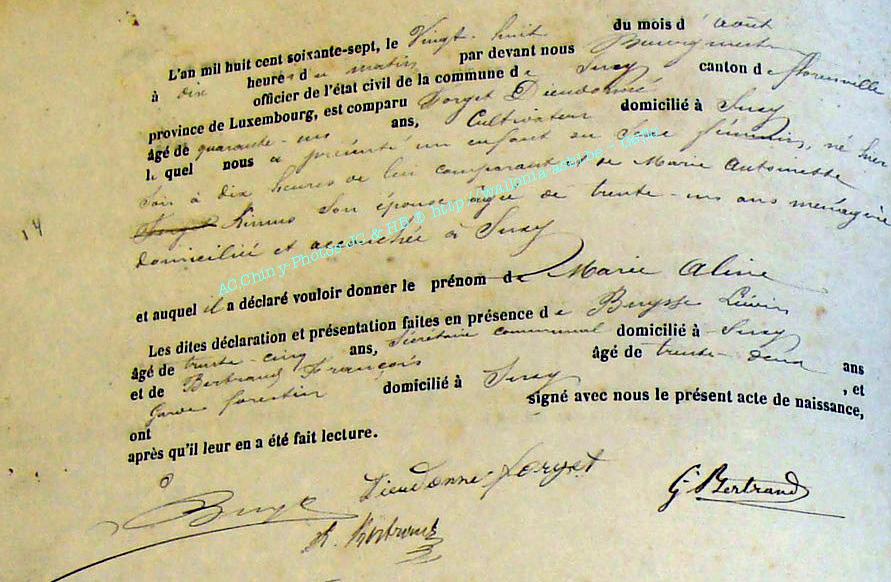 L'an mil huit cent soixante-sept, le Vingt-huit du mois d'août
à dix heures du matin par devant nous Bourgmestre
officier de l'état civil de la commune de Suxy canton de Florenville
province de Luxembourg, est comparu Forget Dieudonné
âgé de quarante-un ans, Cultivateur domicilié à Suxy
lequel nous a présenté un enfant du Sexe féminin, né hier
soir à dix heures de lui comparant et de Marie Antoinette
Forget Rimus Son épouse agée de trente-un ans ménagère
domicilié et accouchée à Suxy
14
et auquel il a déclaré vouloir donner le prénom de Marie Aline
Les dites déclaration et présentation faites en présence de Buysse Liévin
âgé de trente-cinq ans, Secrétaire communal domicilié à Suxy
et de Bertrand François âgé de trente-deux ans
Garde forestier domicilié à Suxy , et
ont signé avec nous le présent acte de naissance,
après qu'il leur en a été fait lecture.
Dieudonné Forget
G Bertrand
AC.Chiny-Photos JC & HB © http://wallonia.asbl.be